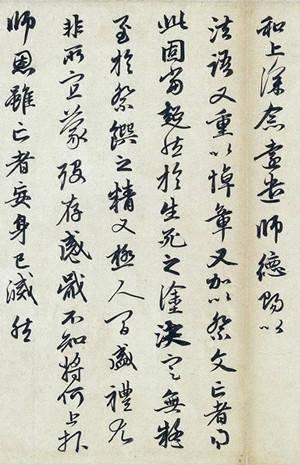 和上深念遠遣師德賜以
法語又重以悼章又加以祭文亡者得
此固當超然於生死之塗決定無疑
至於祭饌之精又極人間盛禮尤
非所宜蒙歿存感戴不知將何上報
師恩雖亡者妄身已滅然